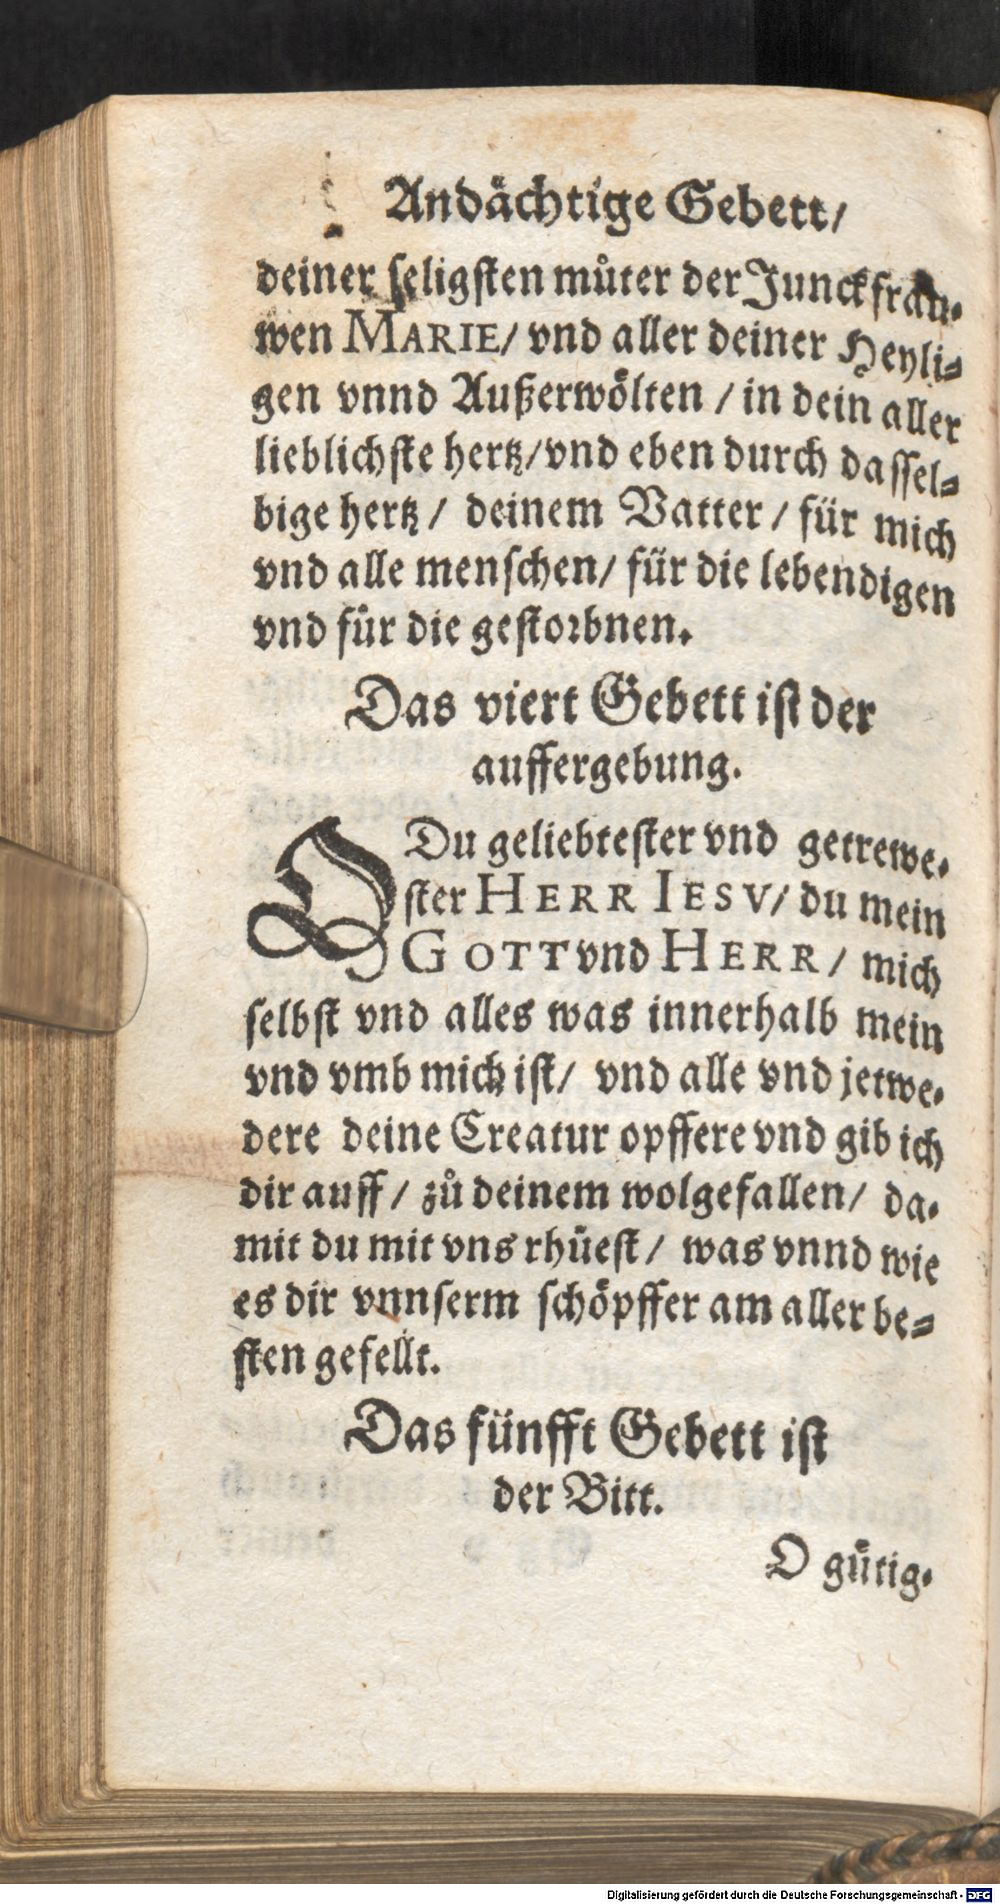 Andächtige Gebett/
deiner seligsten můter der Junckfrau-
wen MARIE/ vnd aller deiner Heyli-
gen vnnd Außerwölten / in dein aller
lieblichste hertz/vnd eben durch dassel-
bige hertz / deinem Vatter / für mich
vnd alle menschen/ für die lebendigen
vnd für die gestorbnen.
Das viert Gebett ist der
auffergebung.
O Du geliebtester vnd getrewe-
ster HERR IESV/ du mein
GOTT vnd HERR / mich
selbst vnd alles was innerhalb mein
vnd vmb mich ist/ vnd alle vnd jetwe-
dere deine Creatur opffere vnd gib ich
dir auff / zů deinem wolgefallen/ da-
mit du mit vns rhüest / was vnnd wie
es dir vnnserm schöpffer am aller be-
sten gefellt.
Das fünfft Gebett ist
der Bitt.
O gütig-
Digitalisierung gefördert durch die Deutsche Forschungsgemeinschaft - DFG